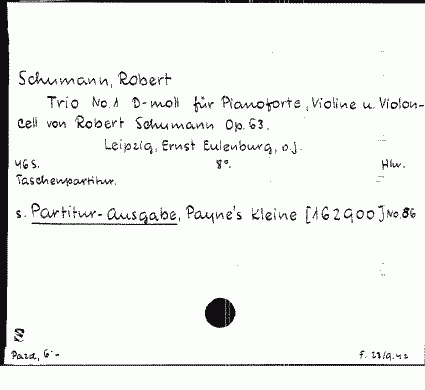 Schumann, Robert
Trio No.1 D-moll für Pianoforte, Violine u. Violon-
cell von Robert Schumann Op. 63.
Leipzig, Ernst Eulenburg, o.J.
46 S. 8°. Hlw.
Taschenpartitur.
s. Partitur-Ausgabe, Payne's Kleine [162900] No. 86
6.-